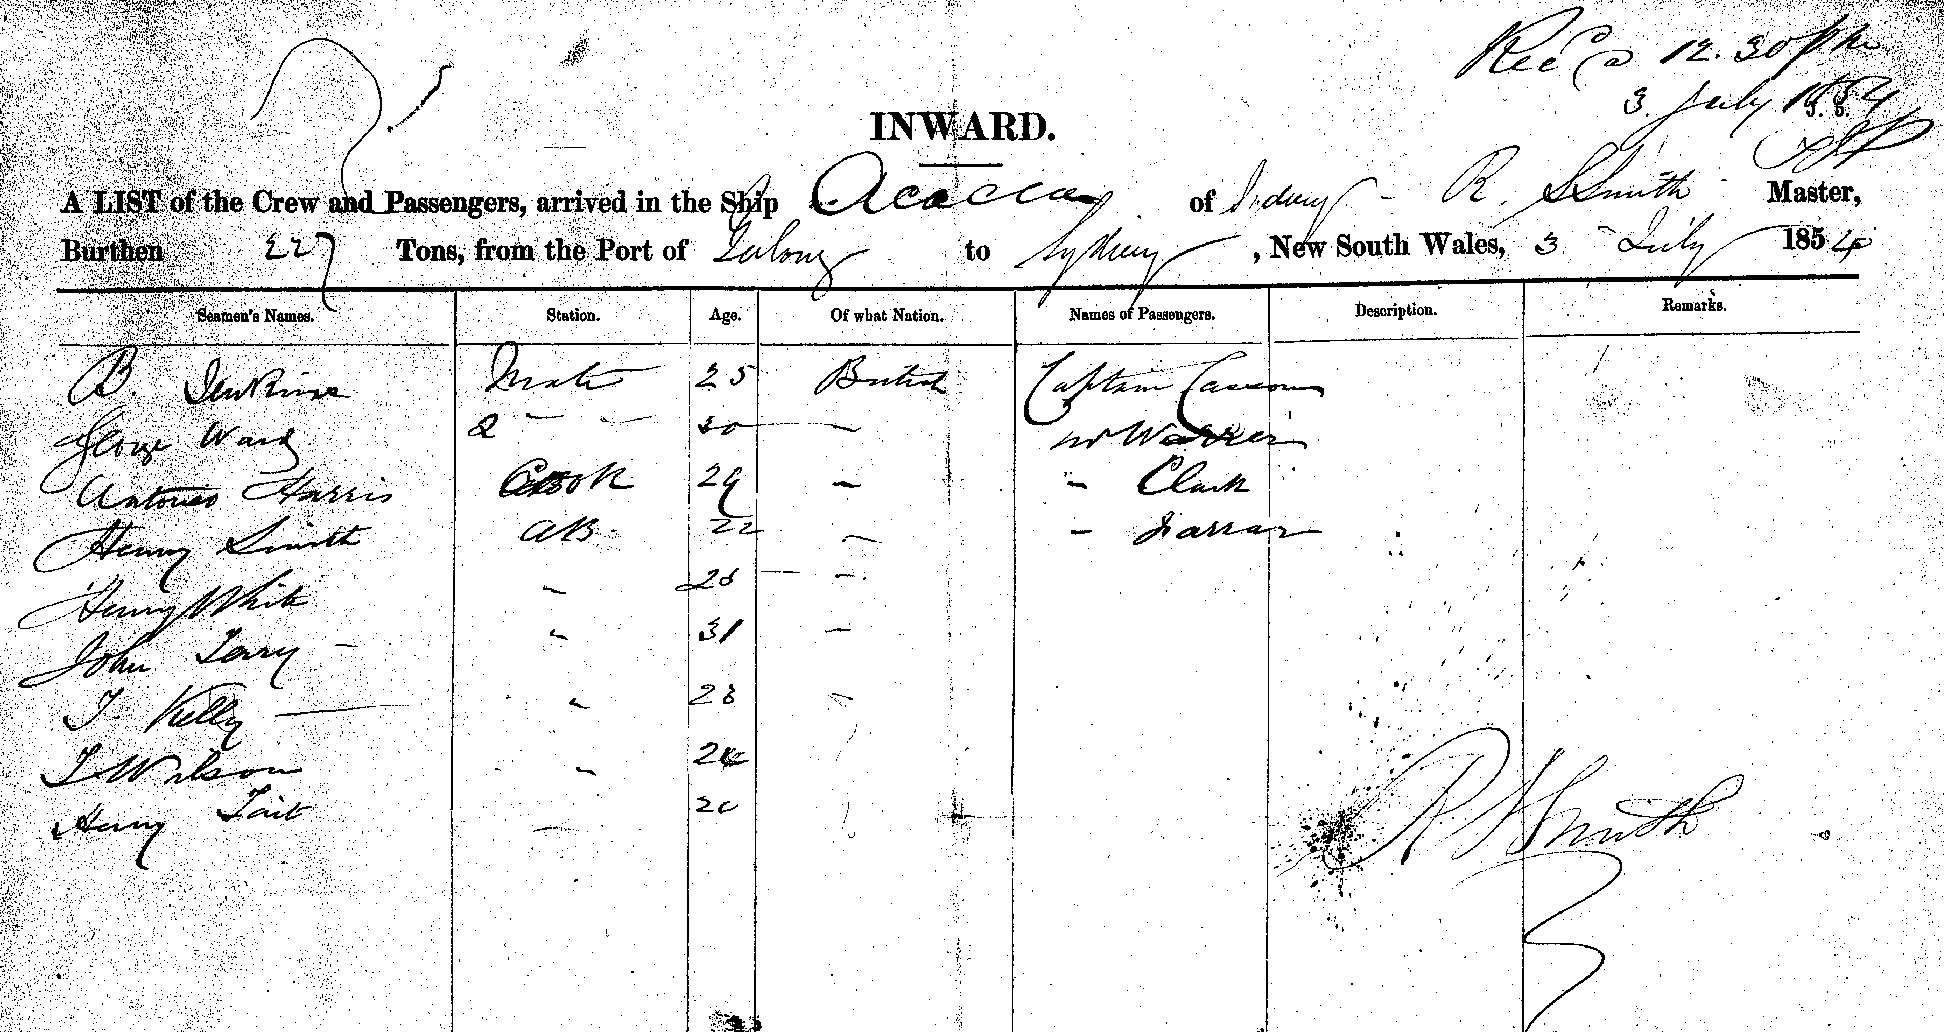 Rec'd 12.30 pm
3. July 1854
INWARD.
A LIST of the Crew and Passengers, arrived in the Ship Acacia of Sydney - R. S Smith Master,
Burthen 227 Tons, from the Port of Gelong to Sydney, New South Wales, 3 July 1854
Seamen's Names. Station. Age. Of what Nation. Names of Passengers. Description. Remarks.
B. Jenkins Mate 25 British Captain
George Ward 2 - - 30 - Mr Warren
Antonio Harris Cook 29 - - Clark
Henry Smith AB. 22 - - Farrar
Henry White - 28 -
John Terry - - 31 -
T Kelly - 28 -
T Wilson - 24
Henry Tait - 20
R S Smith